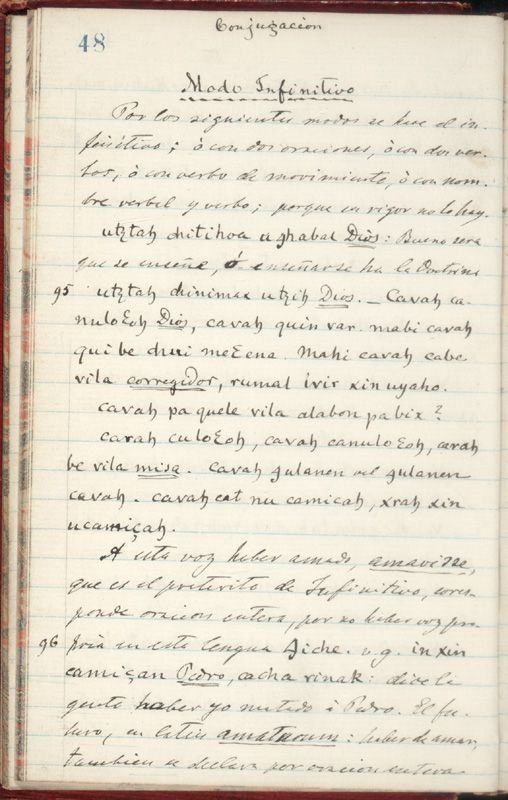 Conjugacion
48
Modo Infinitivo
Por los siguientes modos se hace el in-
finitivo; ò con dos oraciones, ò con dos ver-
bos, ò con verbo de movimiento, ò con nom-
bre verbal y verbo; porque en rigor no lo hay.
utztah chitihoa u ɟhabal Dios: Bueno sera
que se enseñe, ó enseñarse ha la Doctrina
95 utztah chinimax utzih Dios. _ Cavah ca-
nuloƐoh Dios, cavah quin var. mabi cavah
qui be chui meƐena. Mahi cavah cabe
vila corregidor, rumal ivir xin uyaho.
cavah pa quele vila alabon pa bix?
Cavah culoƐoh, cavah canuloƐoh, cavah
be vila misa. Cavah ɟulanen vel ɟulanen
cavah. cavah cat nu camicah, xrah xin
ucamiçah.
A esta voz haber amado, amavisse,
que es el preterito de Infinitivo, corres-
ponde oracion entera, por no haber voz pro-
96 pria en esta lengua Qiche. v.g. in xin
camiçan Pedro, cacha vinak: dice la
gente haber yo matado à Pedro. El fu-
turo, en latin amaturum: haber de amar,
tambien se declara por oracion entera